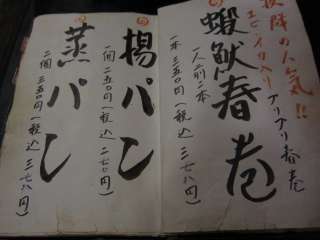 抜群の人気!!
エビ・イカ入り プリプリ春巻
蝦魷春巻
一人前二本
一本 三五〇円(税込 三七八円)
揚パン
一個 二五〇円(税込 二七〇円)
蒸パン
二個 三五〇円(税込 三七八円)